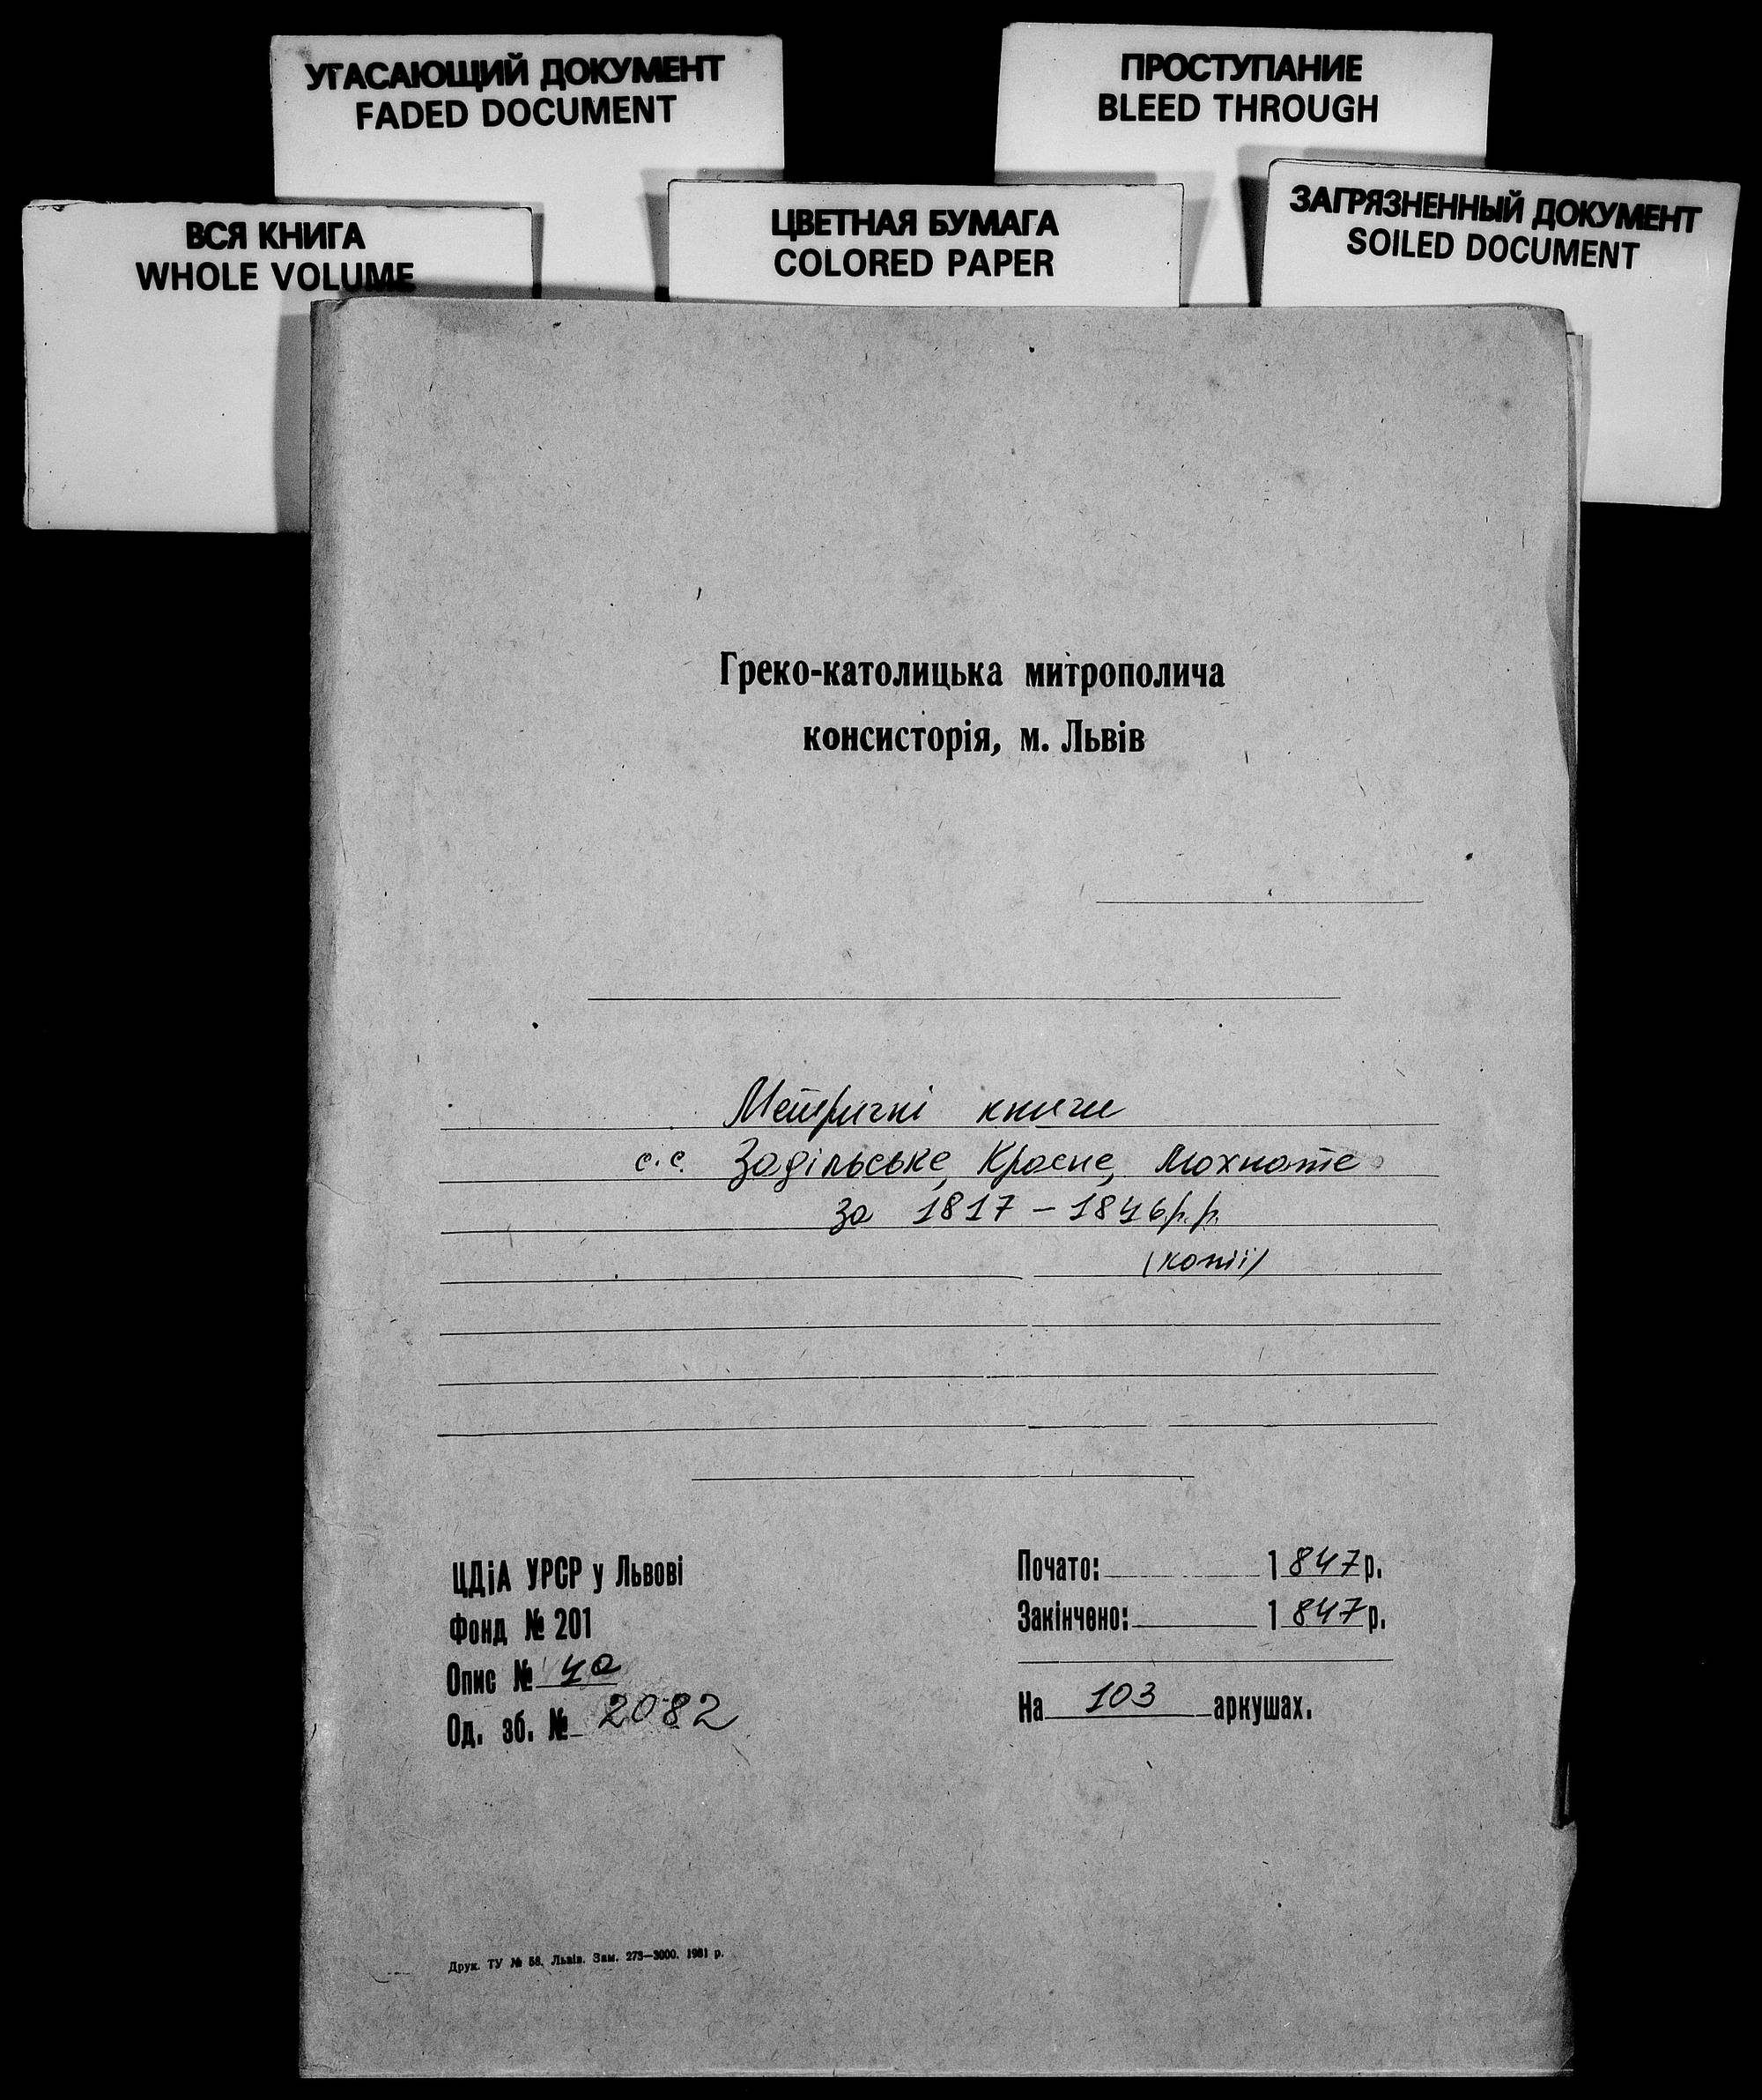 УГАСАЮЩИЙ ДОКУМЕНТ
FADED DOCUMENT
ПРОСТУПАНИЕ
BLEED THROUGH
ВСЯ КНИГА
WHOLE VOLUME
ЦВЕТНАЯ БУМАГА
COLORED PAPER
ЗАГРЯЗНЕННЫЙ ДОКУМЕНТ
SOILED DOCUMENT
Греко-католицька митрополича
консисторія, м. Львів
Метричні книги
с.с. Задільське, Красне, Мохнате
за 1817 – 1846 р.р.
(копії)
ЦДіА УРСР у Львові
Фонд № 201
Опис № 4а
Од. зб. № 2082
Почато: 1847 р.
Закінчено: 1847 р.
На 103 аркушах.
Друк. ТУ № 58. Львів. Зам. 273—3000. 1981 р.